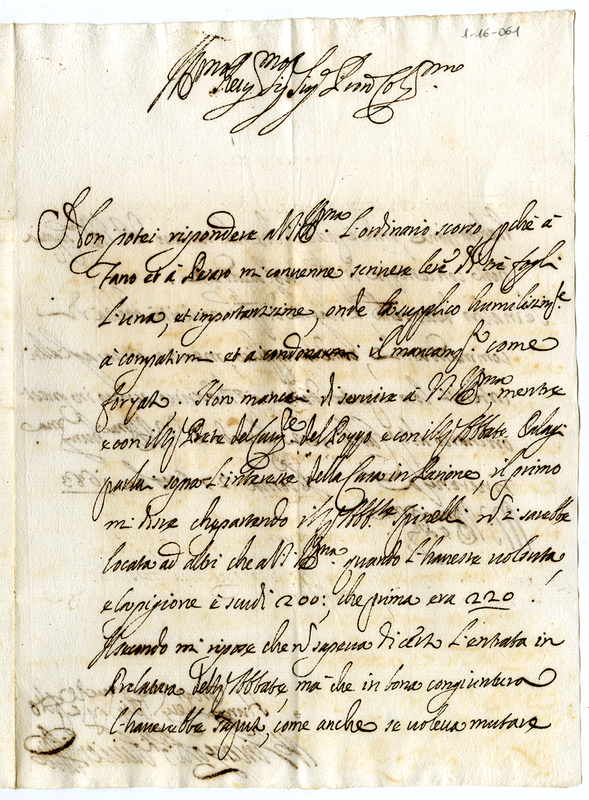 1-16-061
Ill.mo et Rev.mo Sig.r Sig.r Pron Col.mo
Non potei rispondere a V.S. Ill.ma L'ordinario scorso, p.che à
Fano et à Pesaro mi convenne scrivere l.re di tre fogli
L'una, et importantissime, onde la supplico humilissim.e
à compatirmi et à condonarmi il mancam.to come
forzato. Non mancai di servire à V.S. Ill.ma mentre
e con il S.r Prete del Cav.re del Pozzo e con il S.r Abbate
parlai sopra L'interesse della Casa in Parione, il primo
mi disse che partendo il S.r Abb.te Spinelli non si sarebbe
locata ad altri che a V.S. Ill.ma quando L'havesse voluta,
e la pigione è scudi 200: che prima era 220.
Il secondo mi rispose che non sapeva di certo L'entrata in
Prelatura dell'Abbate, ma che in bona congiuntura
l'haverebbe saputo, come anche se voleva mutare